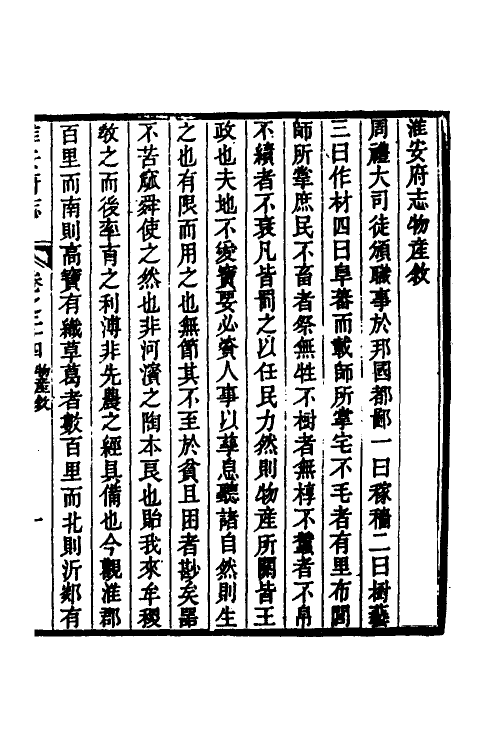 淮安府志物產敘
周禮大司徒頒職事於邦國都鄙一曰稼穡二曰樹藝
三曰作材四曰阜蕃而載師所掌宅不毛者有里布閭
師所掌庶民不畜者祭無牲不樹者無椁不蠶者不帛
不績者不衰凡皆罰之以任民力然則物產所關皆王
政也夫地不愛寶要必資人事以孳息聽諸自然則生
之也有限而用之也無節其不至於貧且困者尠矣器
不苦窳舜使之然也非河濱之陶本良也貽我來牟稷
教之而後率育之利溥非先農之經具備也今觀淮郡
百里而南則高寶有織草葛者數百里而北則沂郯有
淮安府志 卷之二十四 物產敘 一